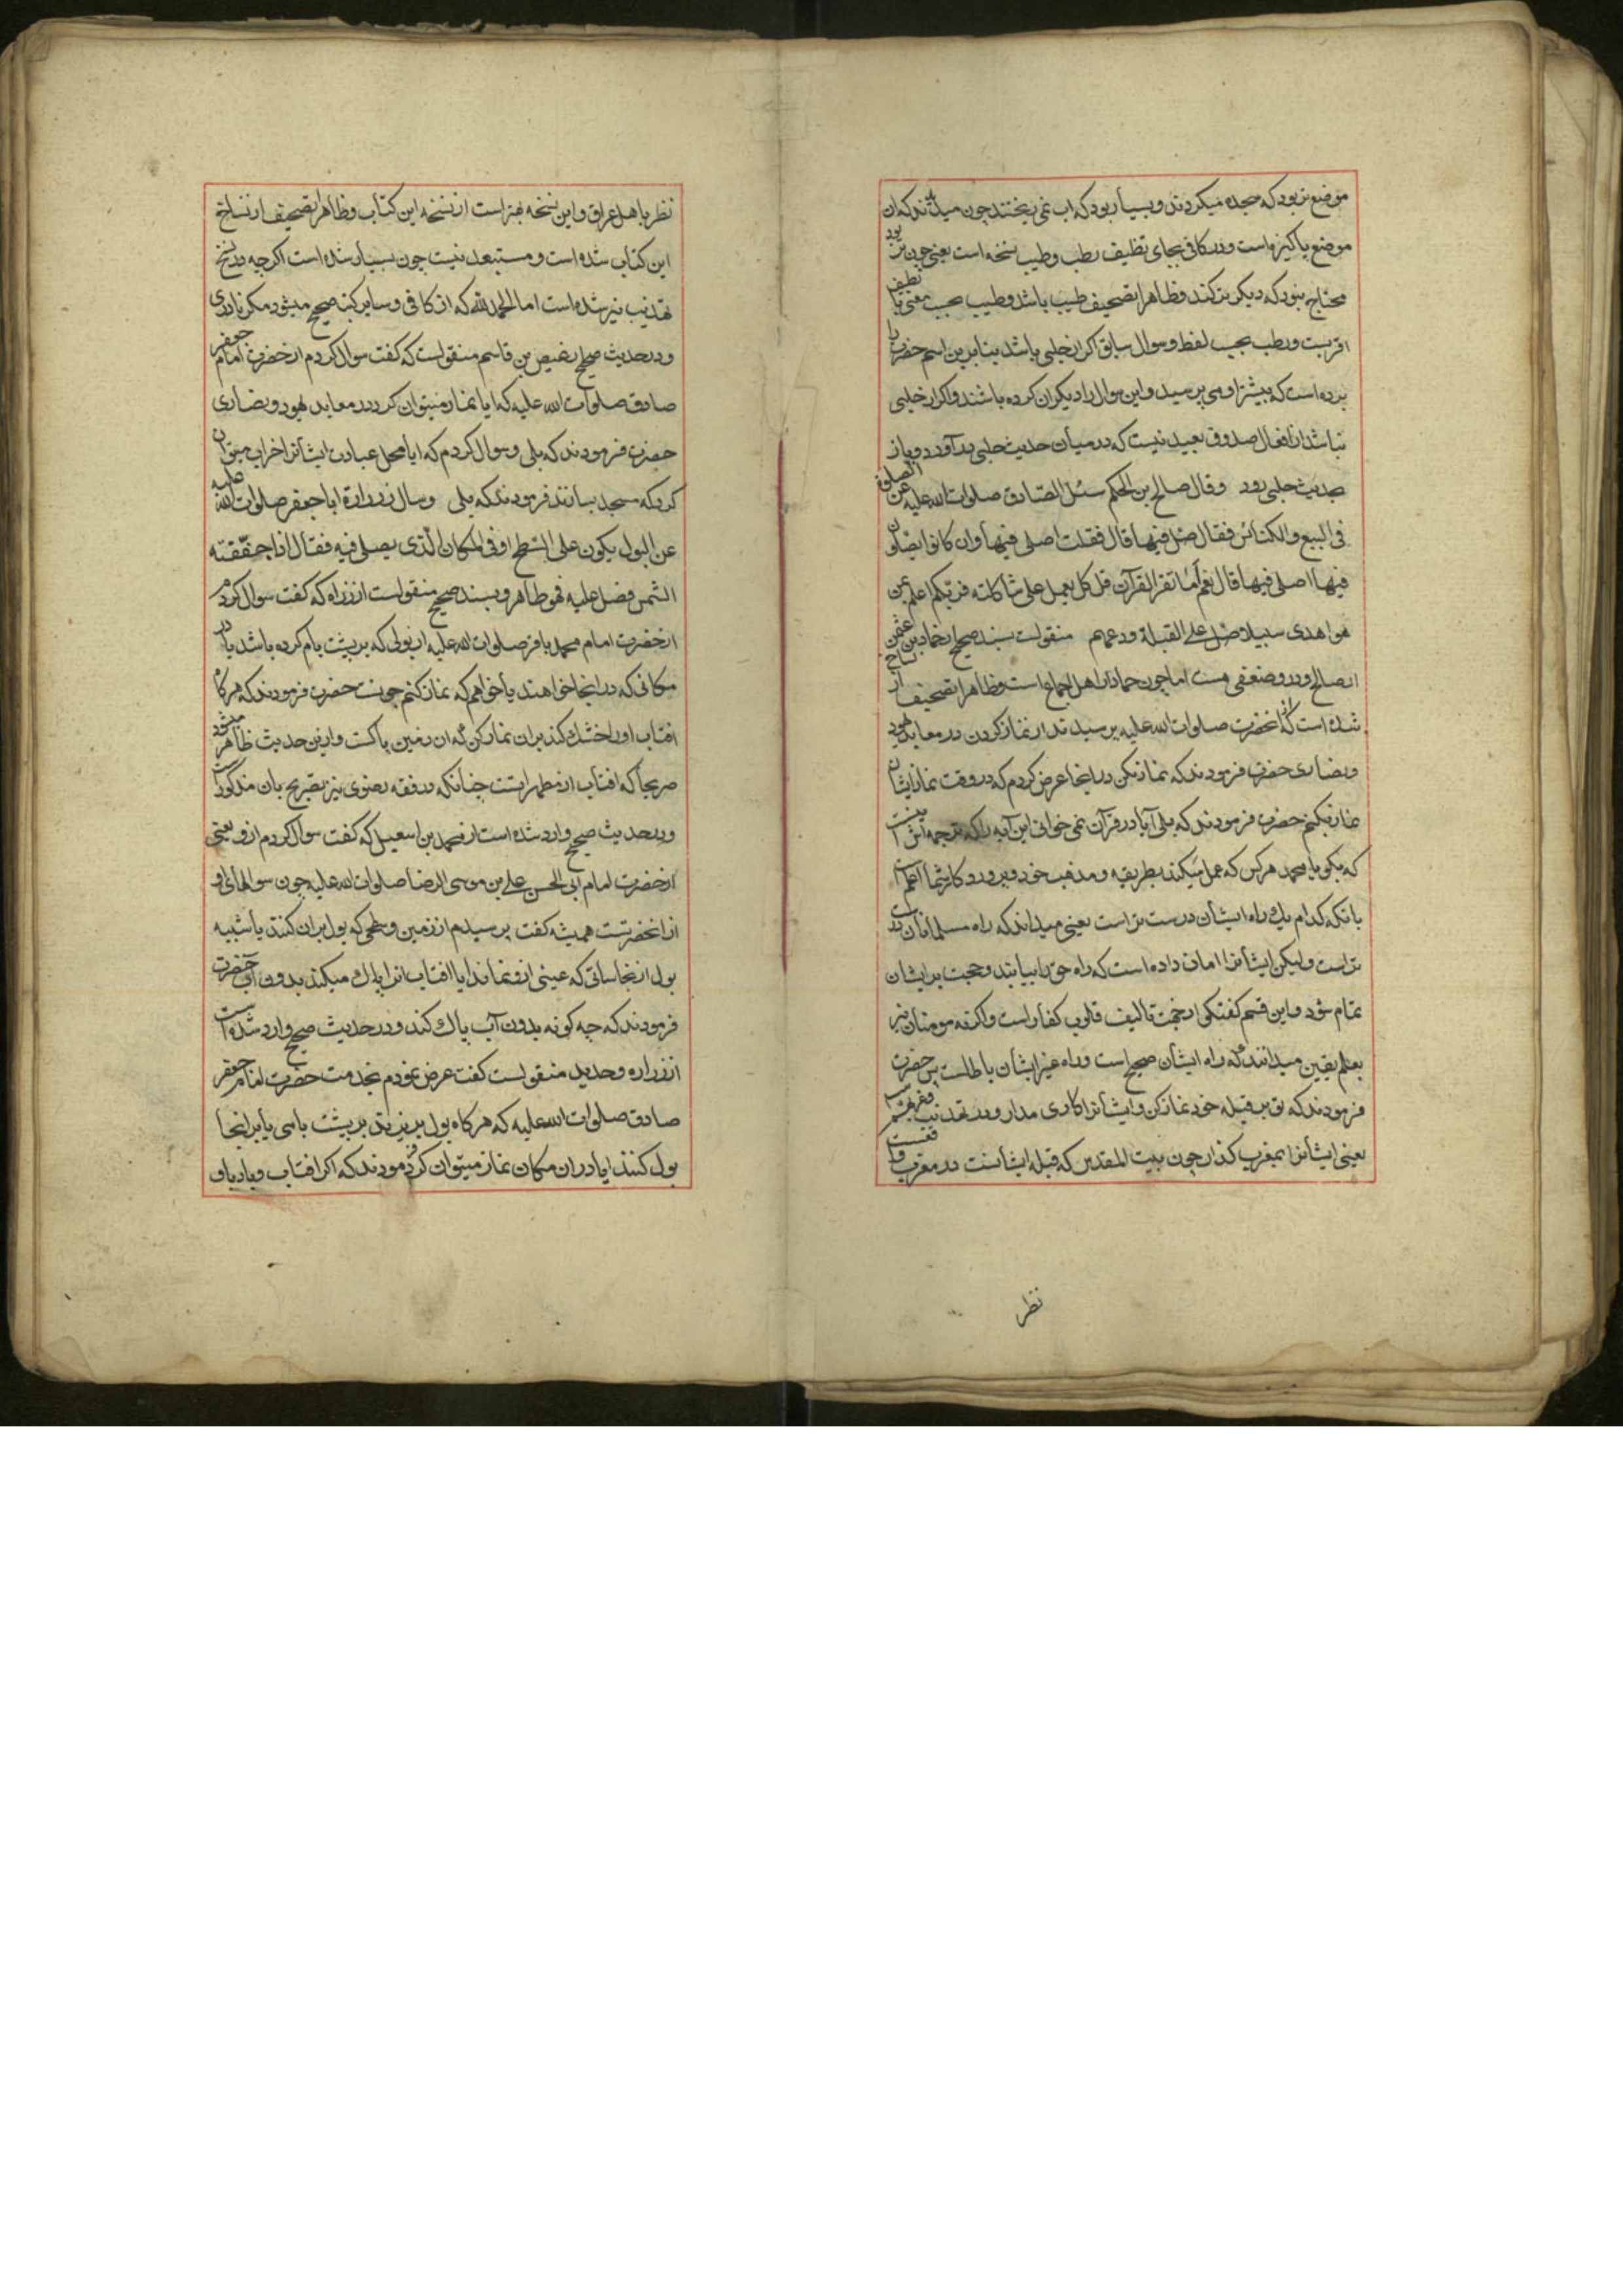 موضع تر بود که سجده میکردند و بسیار بود که اب نمی ریختند چون میدانند که ان
موضع پاکیزه است و در کافی بجای نظیف رطب و طیب نسخه است یعنی چون تر بود
محتاج نبود که دیگر تر کنند و ظاهرا تصحیف طیب باشد و طیب بحسب معنی با نظیف
اقربست و رطب بحسب لفظ و سوال سابق اگر از حلبی باشد بنابرین اسم حضرت را
نبرده است که بیشتر او می پرسید و این سوال را دیگران کرده باشند و اگر از حلبی
نباشد از افعال صدوق بعید نیست که در میان حدیث حلبی در آورد و باز
بحدیث حلبی رود وقال صالح بن الحکم سئل الصّادق صلوات الله علیه عن الصلوة
فی البیع والکنائس فقال صلّ فیها قال فقلت اصلی فیها وان کانوا یصلّون
فیها اصلی فیها قال نعم أما تقرأ القرآن قل کل یعمل علی شاکلته فربکم اعلم بمن
هو اهدی سبیلا صل علی القبلة ودعهم منقولست بسند صحیح از حماد بن عثمن
از صالح و درو ضعفی هست اما چون حماد از اهل اجماع است و ظاهرا تصحیف از نساخ
شده است که از انحضرت صلوات الله علیه پرسیدند از نماز کردن در معابد یهود
و نصاری حضرت فرمودند که نماز بکن در انجا عرض کردم که در وقت نماز ایشان
نماز بکنم حضرت فرمودند که بلی آیا در قرآن نمی خوانی این آیه را که ترجمه اش اینست
که بگو یا محمد هر کس که عمل میکند بطریقه و مذهب خود و پروردکار شما اعلم است
بانکه کدام یک راه ایشان درست تر است یعنی میداند که راه مسلمانان درست
تر است و لیکن ایشانرا امان داده است که راه حق را بیابند و حجت بر ایشان
تمام شود و این قسم گفتگو از جهت تالیف قلوب کفار است و اگر نه مومنان نیز
بعلم یقین میدانند که راه ایشان صحیح است و راه غیر ایشان باطلست پس حضرت
فرمودند که تو بر قبله خود نماز کن و ایشانرا کاری مدار و در تهذیب
یعنی ایشانرا بمغرب گذار چون بیت المقدس که قبله ایشانست در مغرب واقعست
نظر
نظر باهل عراق و این نسخه بهتر است از نسخه این کتاب و ظاهرا تصحیف از نساخ
این کتاب شده است و مستبعد نیست چون بسیار شده است اکر چه در نسخ
تهذیب نیز شده است اما الحمد لله که از کافی و سایر کتب صحیح میشود مکر نادری
و در حدیث صحیح از عیص بن قاسم منقولست که کفت سوال کردم از حضرت امام جعفر
صادق صلوات الله علیه که ایا نماز میتوان کرد در معابد یهود و نصاری
حضرت فرمودند که بلی و سوال کردم که ایا محل عبادت ایشانرا خراب میتوان
کرد که مسجد بسازند فرمودند که بلی وسال زرارة ابا جعفر صلوات الله علیه
عن البول یکون علی السّطح او فی المکان الّذی یصلی فیه فقال اذا جفّفته
الشّمس فصل علیه فهو طاهر و بسند صحیح منقولست از زراره که کفت سوال کردم
از حضرت امام محمد باقر صلوات الله علیه از بولی که بر پشت بام کرده باشد یا در
مکانی که در انجا خواهند یا خواهم که نماز کنم چونست حضرت فرمودند که هر گاه
افتاب او را خشک کند بران نماز کن که ان زمین پاکست و ازین حدیث ظاهر میشود
صریحا که افتاب از مطهراتست چنانکه در فقه رضوی نیز تصریح بان مذکور است
و در حدیث صحیح وارد شده است از محمد بن اسمعیل که کفت سوال کردم ازو یعنی
از حضرت امام ابی الحسن علی بن موسی الرضا صلوات الله علیه چون سوالهای او
از انحضرتست همیشه کفت پرسیدم از زمین و سطحی که بول بران کنند یا شبیه
بول از نجاساتی که عینی ازو نماند ایا افتاب انرا پاک میکند بدون آب حضرت
فرمودند که چه کونه بدون آب پاک کند و در حدیث صحیح وارد شده است
از زراره و حدید منقولست کفت عرض نمودم بخدمت حضرت امام جعفر
صادق صلوات الله علیه که هر کاه بول بریزند بر پشت بامی یا بر انجا
بول کنند ایا در ان مکان نماز میتوان کرد فرمودند که اکر افتاب و باد باو